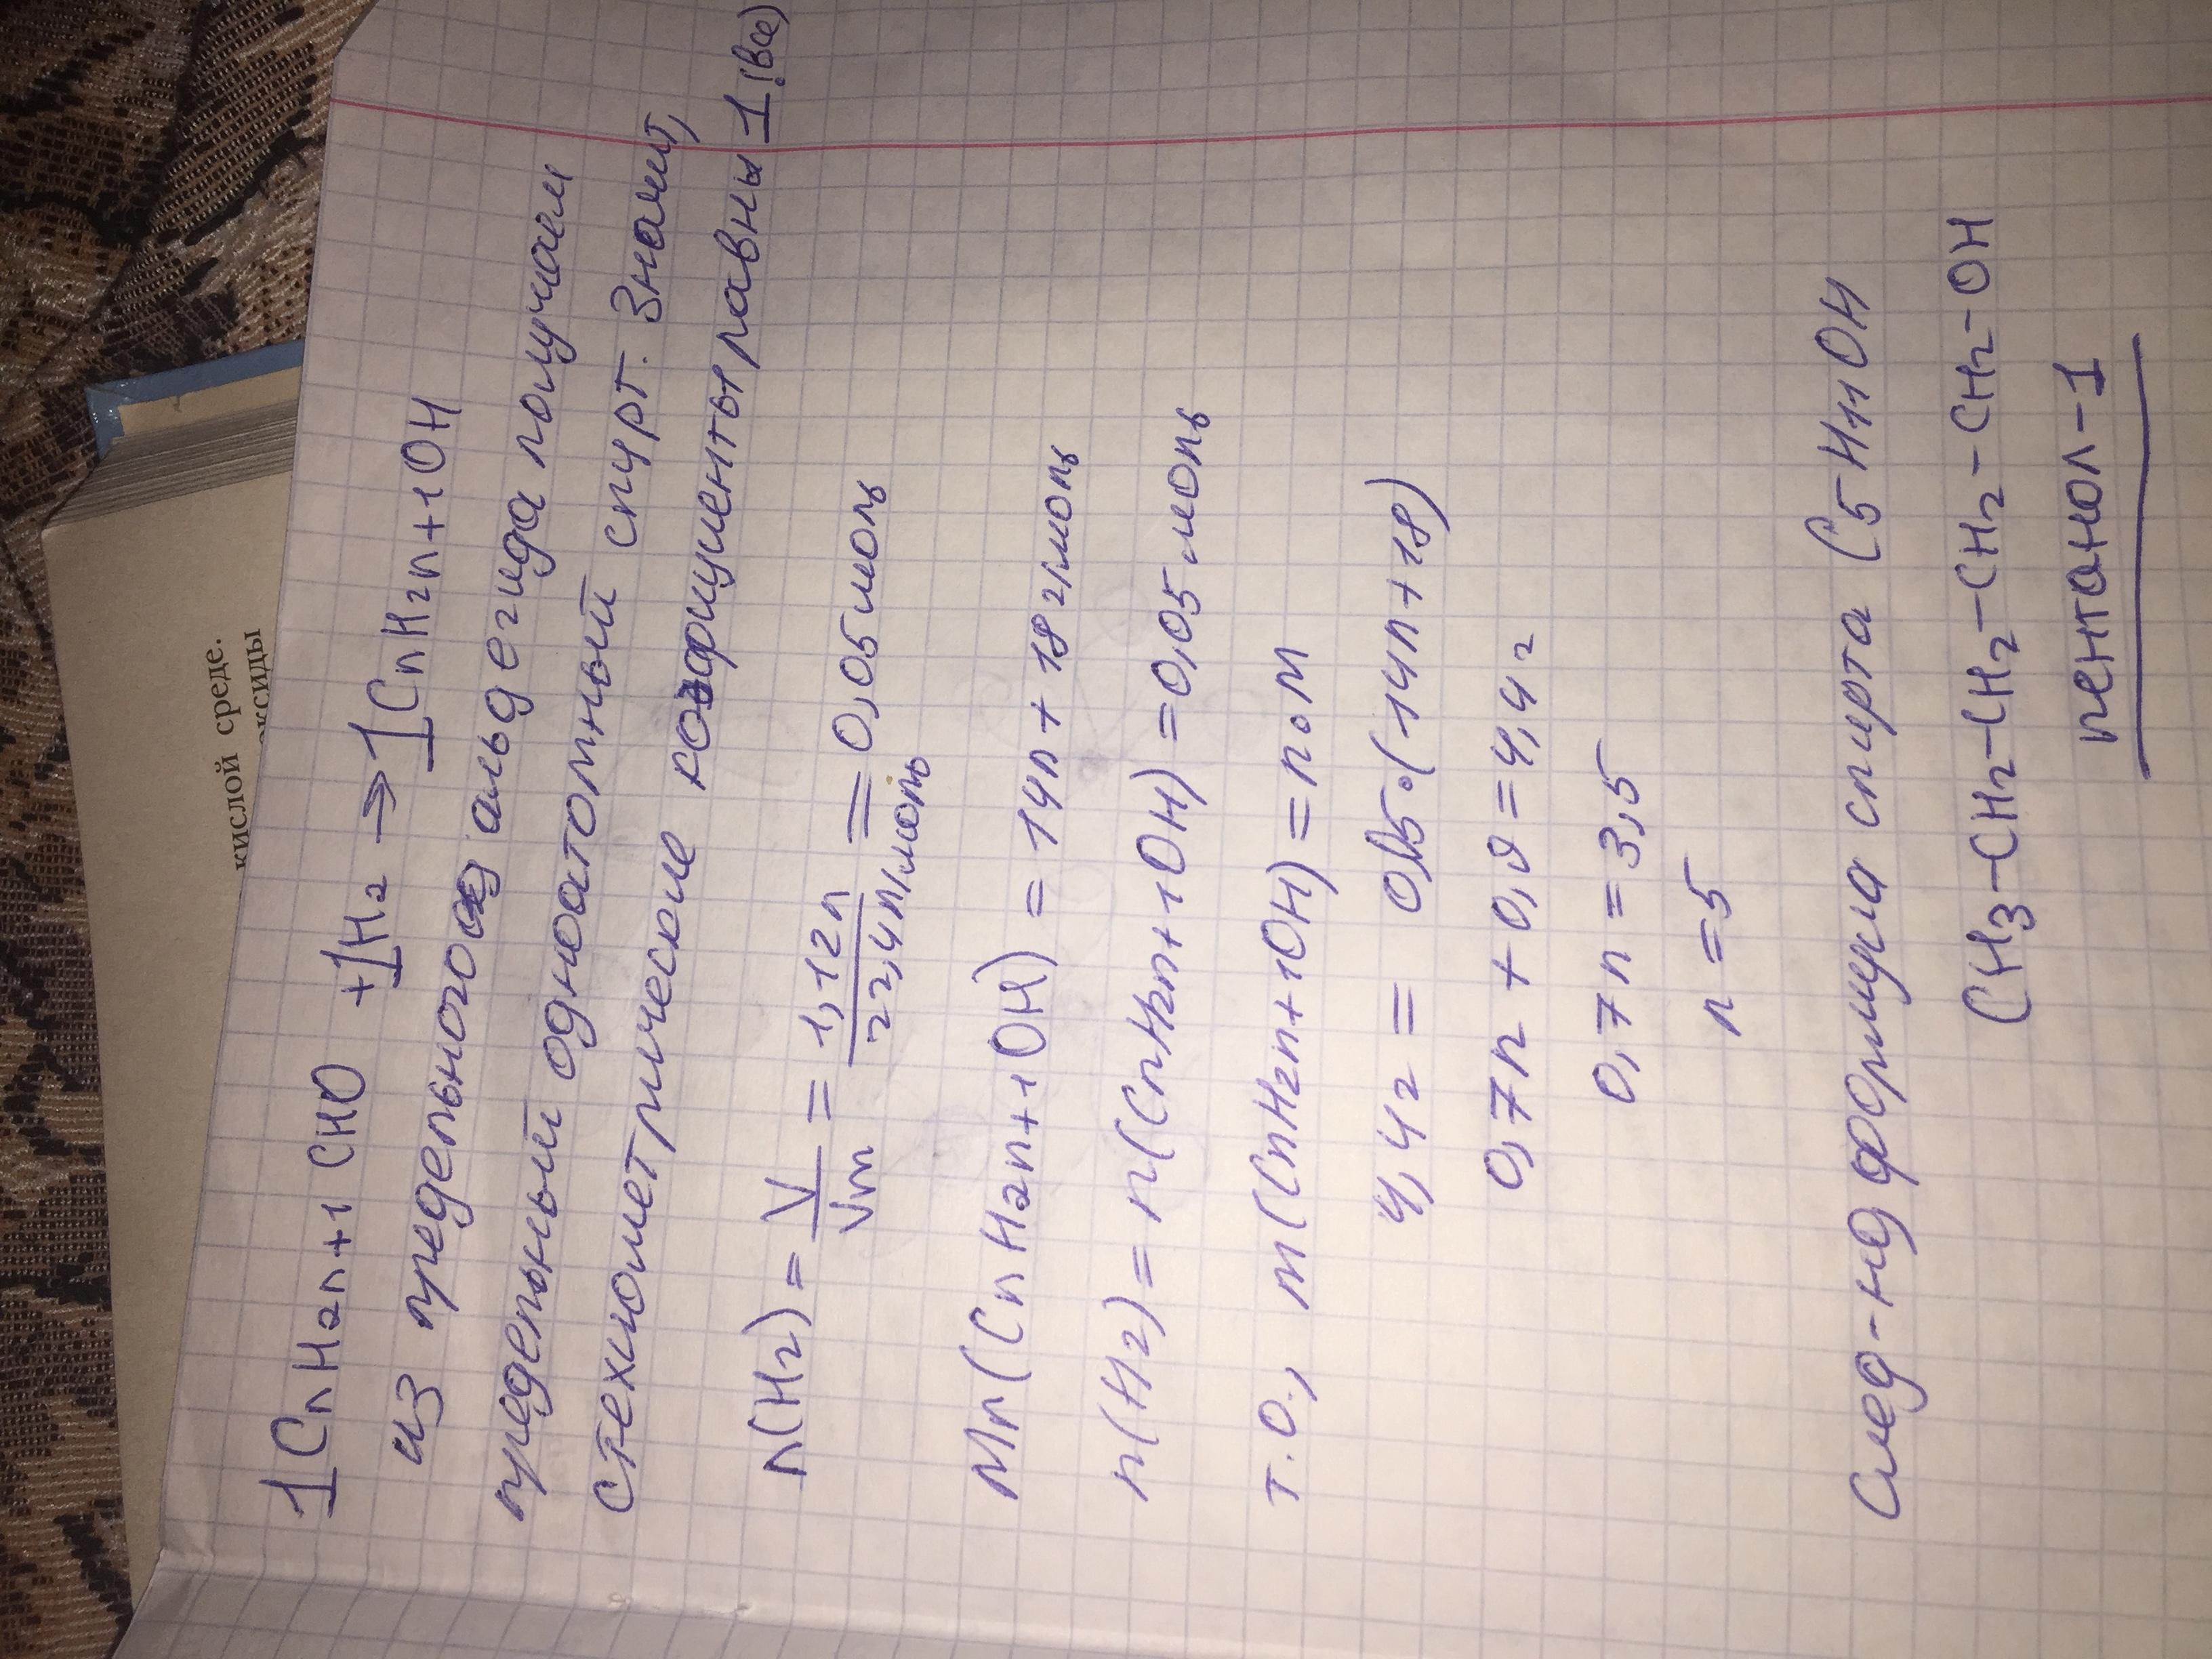 кислой среде.
оксиды
1CnH2n+1CHO +1H2 → 1CnH2n+1OH
из предельного альдегида получаем
предельный одноатомный спирт. Значит,
стехиометрические коэфициенты равны 1 (все)
n(H2) = V/Vm = 1,12л/22,4л/моль = 0,05моль
Mr(CnH2n+1OH) = 14n + 18 г/моль
n(H2) = n(CnH2n+1OH) = 0,05 моль
т.о., m(CnH2n+1OH) = n∘M
4,42 = 0,05∘(14n+18)
0,7n + 0,9 = 4,42
0,7n = 3,5
n = 5
След-но формула спирта C5H11OH
CH3-CH2-CH2-CH2-CH2-OH
пентанол-1